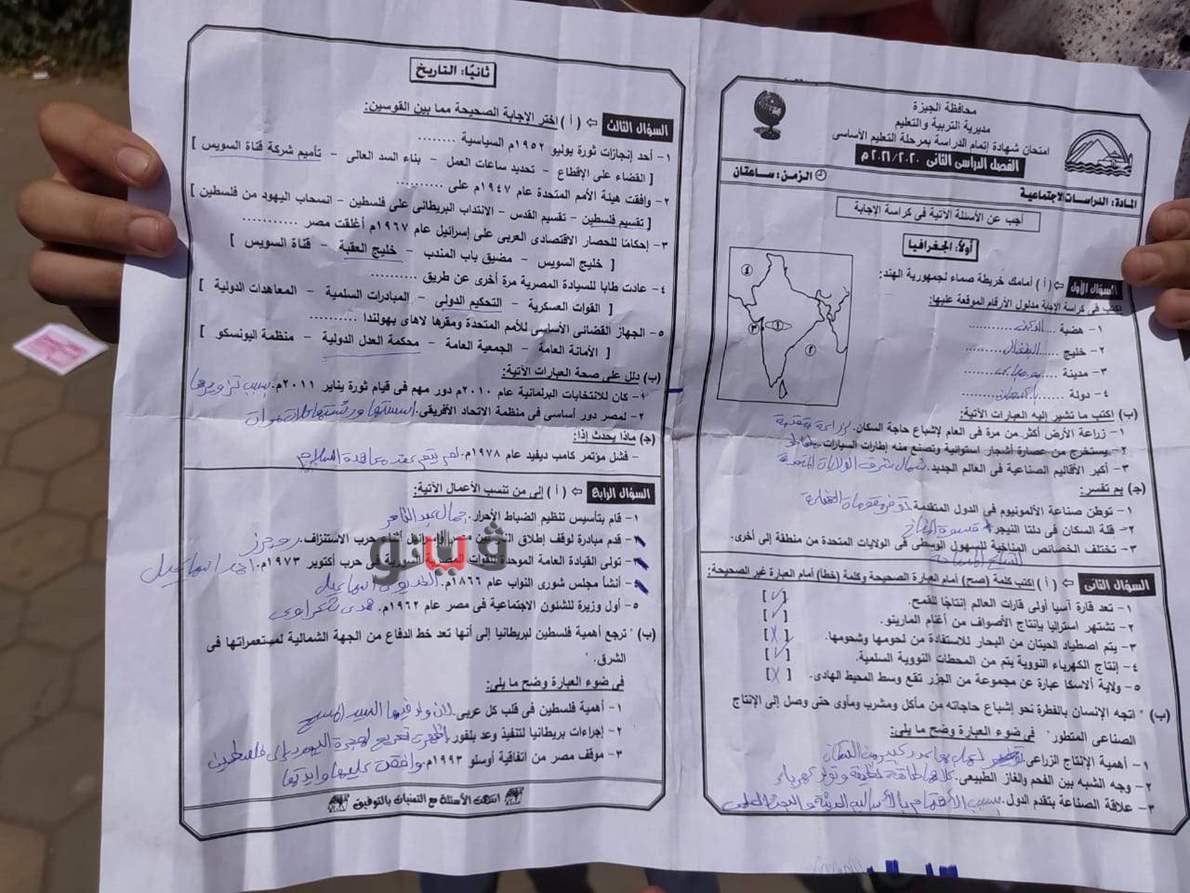 محافظة الجيزة
مديرية التربية والتعليم
امتحان شهادة إتمام الدراسة بمرحلة التعليم الأساسى
الفصل الدراسى الثانى ٢٠٢٠/ ٢٠٢١م
المادة: الدراسات الاجتماعية
الزمن: ساعتان
أجب عن الأسئلة الآتية فى كراسة الإجابة
أولاً: الجغرافيا
السؤال الأول
( أ ) أمامك خريطة صماء لجمهورية الهند:
اكتب فى كراسة الإجابة مدلول الأرقام الموقعة عليها:
١- هضبة ..... الدكن .....
٢- خليج ..... البنغال .....
٣- مدينة ..... بومباى .....
٤- دولة ..... باكستان .....
(ب) اكتب ما تشير إليه العبارات الآتية:
١- زراعة الأرض أكثر من مرة فى العام لإشباع حاجة السكان. زراعة كثيفة
٢- يستخرج من عصارة أشجار استوائية وتصنع منه إطارات السيارات. مطاط
٣- أكبر الأقاليم الصناعية فى العالم الجديد. شمال شرق الولايات المتحدة
(ج) بم تفسر:
١- توطن صناعة الألومنيوم فى الدول المتقدمة.
٢- قلة السكان فى دلتا النيجر. قسوة المناخ
٣- تختلف الخصائص المناخية للسهول الوسطى فى الولايات المتحدة من منطقة إلى أخرى.
السؤال الثانى
( أ ) اكتب كلمة (صح) أمام العبارة الصحيحة وكلمة (خطأ) أمام العبارة غير الصحيحة:
١- تعد قارة آسيا أولى قارات العالم إنتاجًا للقمح. [ ✓ ]
٢- تشتهر استراليا بإنتاج الأصواف من أغنام المارينو. [ ✓ ]
٣- يتم اصطياد الحيتان من البحار للاستفادة من لحومها وشحومها. [ X ]
٤- إنتاج الكهرباء النووية يتم من المحطات النووية السلمية. [ ✓ ]
٥- ولاية ألاسكا عبارة عن مجموعة من الجزر تقع وسط المحيط الهادى. [ X ]
(ب) " اتجه الإنسان بالفطرة نحو إشباع حاجاته من مأكل ومشرب ومأوى حتى وصل إلى الإنتاج
الصناعى المتطور" فى ضوء العبارة وضح ما يلى:
١- أهمية الإنتاج الزراعى. يعمل بها عدد كبير من السكان
٢- وجه الشبه بين الفحم والغاز الطبيعى.
٣- علاقة الصناعة بتقدم الدول.
ثانيًا: التاريخ
السؤال الثالث
( أ ) اختر الإجابة الصحيحة مما بين القوسين:
١- أحد إنجازات ثورة يوليو ١٩٥٢م السياسية .......
[ القضاء على الإقطاع - تحديد ساعات العمل - بناء السد العالى - تأميم شركة قناة السويس ]
٢- وافقت هيئة الأمم المتحدة عام ١٩٤٧م على .........
[ تقسيم فلسطين - تقسيم القدس - الانتداب البريطانى على فلسطين - انسحاب اليهود من فلسطين ]
٣- إحكامًا للحصار الاقتصادى العربى على إسرائيل عام ١٩٦٧م أغلقت مصر .........
[ خليج السويس - مضيق باب المندب - خليج العقبة - قناة السويس ]
٤- عادت طابا للسيادة المصرية مرة أخرى عن طريق .........
[ القوات العسكرية - التحكيم الدولى - المبادرات السلمية - المعاهدات الدولية ]
٥- الجهاز القضائى الأساسى للأمم المتحدة ومقرها لاهاى بهولندا .........
[ الأمانة العامة - الجمعية العامة - محكمة العدل الدولية - منظمة اليونسكو ]
(ب) دلل على صحة العبارات الآتية:
١- كان للانتخابات البرلمانية عام ٢٠١٠م دور مهم فى قيام ثورة يناير ٢٠١١م. بسبب تزويرها
٢- لمصر دور أساسى فى منظمة الاتحاد الأفريقى.
(ج) ماذا يحدث إذا:
- فشل مؤتمر كامب ديفيد عام ١٩٧٨م. لم يتم عقد معاهدة السلام
السؤال الرابع
( أ ) إلى من تنسب الأعمال الآتية:
١- قام بتأسيس تنظيم الضباط الأحرار. جمال عبد الناصر
٢- قدم مبادرة لوقف إطلاق النار بين مصر وإسرائيل أثناء حرب الاستنزاف. روجرز
٣- تولى القيادة العامة الموحدة للقوات المصرية السورية فى حرب أكتوبر ١٩٧٣م. أحمد اسماعيل
٤- أنشأ مجلس شورى النواب عام ١٨٦٦م. الخديوى اسماعيل
٥- أول وزيرة للشئون الاجتماعية فى مصر عام ١٩٦٢م. هدى شعراوى
(ب) " ترجع أهمية فلسطين لبريطانيا إلى أنها تعد خط الدفاع من الجهة الشمالية لمستعمراتها فى
الشرق. "
فى ضوء العبارة وضح ما يلى:
١- أهمية فلسطين فى قلب كل عربى. لان ولد فيها السيد المسيح
٢- إجراءات بريطانيا لتنفيذ وعد بلفور. لهجرة اليهود إلى فلسطين
٣- موقف مصر من اتفاقية أوسلو ١٩٩٣م. وافقت عليها وايدتها
انتهت الأسئلة مع التمنيات بالتوفيق
ڤيتو